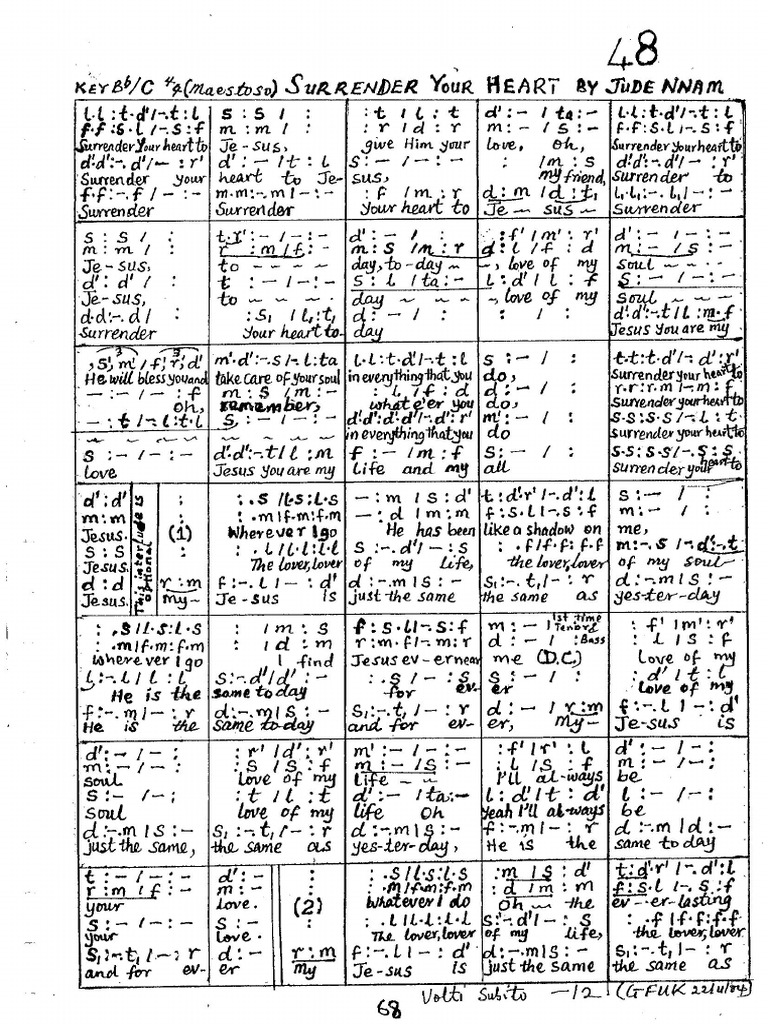 48
KEY Bb/C 4/4 (Maestoso) SURRENDER YOUR HEART BY JUDE NNAM
l.l:t.d'/-.t:l s:s/: :t/l:t d':-/ta:- l.l:t.d'/-.t:l
f.f:s.l/-.s:f m:m/: :r/d:r m:-/s:- f.f:s.l/-.s:f
Surrender Your heart to Je-sus, give Him your love, Oh, Surrender your heart to
d'.d':-.d'/-:r' d':-/t:l s:-/-:- :/m:s d'.d':-.d'/-:r'
Surrender your heart to Je- sus, my friend, surrender to
f.f:-.f/-:- m.m:-.m/-:- :f/m:r d:m/d:t, l,.l,:-.l,/-:-
Surrender Surrender Your heart to Je - sus - Surrender
s:s/: t.r':-/-:- d':-/: :f'/m':r' d':-/-:-
m:m/: r:m/f:- m:s/m:r d:l/f:d m:-/s:-
Je-sus, to ~ ~ ~ day, to-day ~ ~, love of my soul ~ ~
d':d'/: t:-/-:- s:l/ta:- l:d'/l:f s:-/-:-
Je-sus, to ~ ~ ~ day ~ ~ ~, love of my soul ~ ~ ~
d.d:-.d/: :s,/l,:t, d:-/: :/: d'.d':-.t/l:m.f
Surrender Your heart to- day Jesus you are my
,s',m'/f',r',d' m'.d':-.s/-:l.ta l.l:t.d'/-.t:l s:-/: t.t:t.d'/-.d':r'
He will bless you and take care of your soul in everything that you do, Surrender your heart to
-:-/-:f m:s/m:- :l/f:d d:-/: r.r:r.m/-.m:f
oh, remember, what e'er you do, Surrender your heart to
-:t/-.l:t.l s,:-/-:- d'.d':d'.d'/-.d':r' m':-/: s.s:s.s/-.l:t
~ ~ ~ ~ ~ in everything that you do Surrender your heart to
s:-/-:- d'.d':-.t/l:m f:-/m:f s:-/: s.s:s.s/-.s:s
love Jesus you are my Life and my all Surrender your heart to
d':d' : :.s/l.s:l.s -:m/s:d' t:d'.r'/-.d':l s:-/:
m:m : :.m/f.m:f.m -:d/d:m f:s.l/-.s:f m:-/:
Jesus. (1) Wherever I go He has been like a shadow on me,
s:s : :.l/l.l:l.l s:-.d'/-:s :.f/f.f:f.f m:-.s/-.d':-.t
Jesus. The lover, lover of my life, the lover, lover of my soul-
d:d r:m f:-.l/-:d' d:-.m/s:- s,:-.t,/-:r d:-.m/s:-
Jesus. This interlude is optional my- Je-sus is just the same the same as yes-ter-day
:.s/l.s:l.s :/m:s f:s.l/-.s:f m:-/ 1st time Tenors :f'/m':r'
:.m/f.m:f.m :/d:m r:m.f/-.m:r d:-/ :Bass :l/s:f
wherever I go I find Jesus ev-er near me (D.C.) Love of my
l:-.l/l:l s:-.d'/d':- :.s/-:s s:-/: :d'/t:l
He is the same to day for ev- er love of my
f:-.m/-:r d:-.m/s:- s,:-.t,/-:r d:-/r:m f:-.l/-:d'
He is the same to-day and for ev- er, My- Je-sus is
d':-/-:- :r'/d':r' m':-/-:- :f'/r':l d':-/-:
m:-/-: :s/s:f m:-/s:- :l/s:f m:-/-:
soul love of my life ~ ~ I'll al-ways be
s:-/-: :t/l:t d':-/ta:- l:d'/t:d' l:-/-:
soul love of my life Oh Yeah I'll al-ways be
d:-.m/s:- s,:-.t,/-:r d:-.m/s:- f:-.m/-:r d:-.m/d:-
just the same, the same as yes-ter-day, He is the same to day
t:-/-:- d':- : :.s/l.s:l.s :m/s:d' t:d'.r'/-.d':l
r:m/f:- m:- : :.m/f.m:f.m :d/m:m f:s.l/-.s:f
your love. (2) Whatever I do Oh - the ev-er-lasting
s:-/-:- s:- : :.l/l.l:l.l s:-.d'/-:s :.f/f.f:f.f
your love. The lover, lover of my life, the lover, lover
s,:-.t,/-:r d:- r:m f:-.l/-:d' d:-.m/s:- s,:-.t,/-:r
and for ev- er my Je-sus is just the same the same as
68 Volti Subito -12 (GFUK 22/11/04)